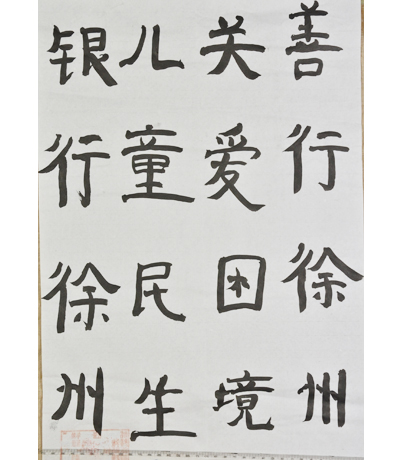 善行徐州
关爱困境
儿童民生
银行徐州